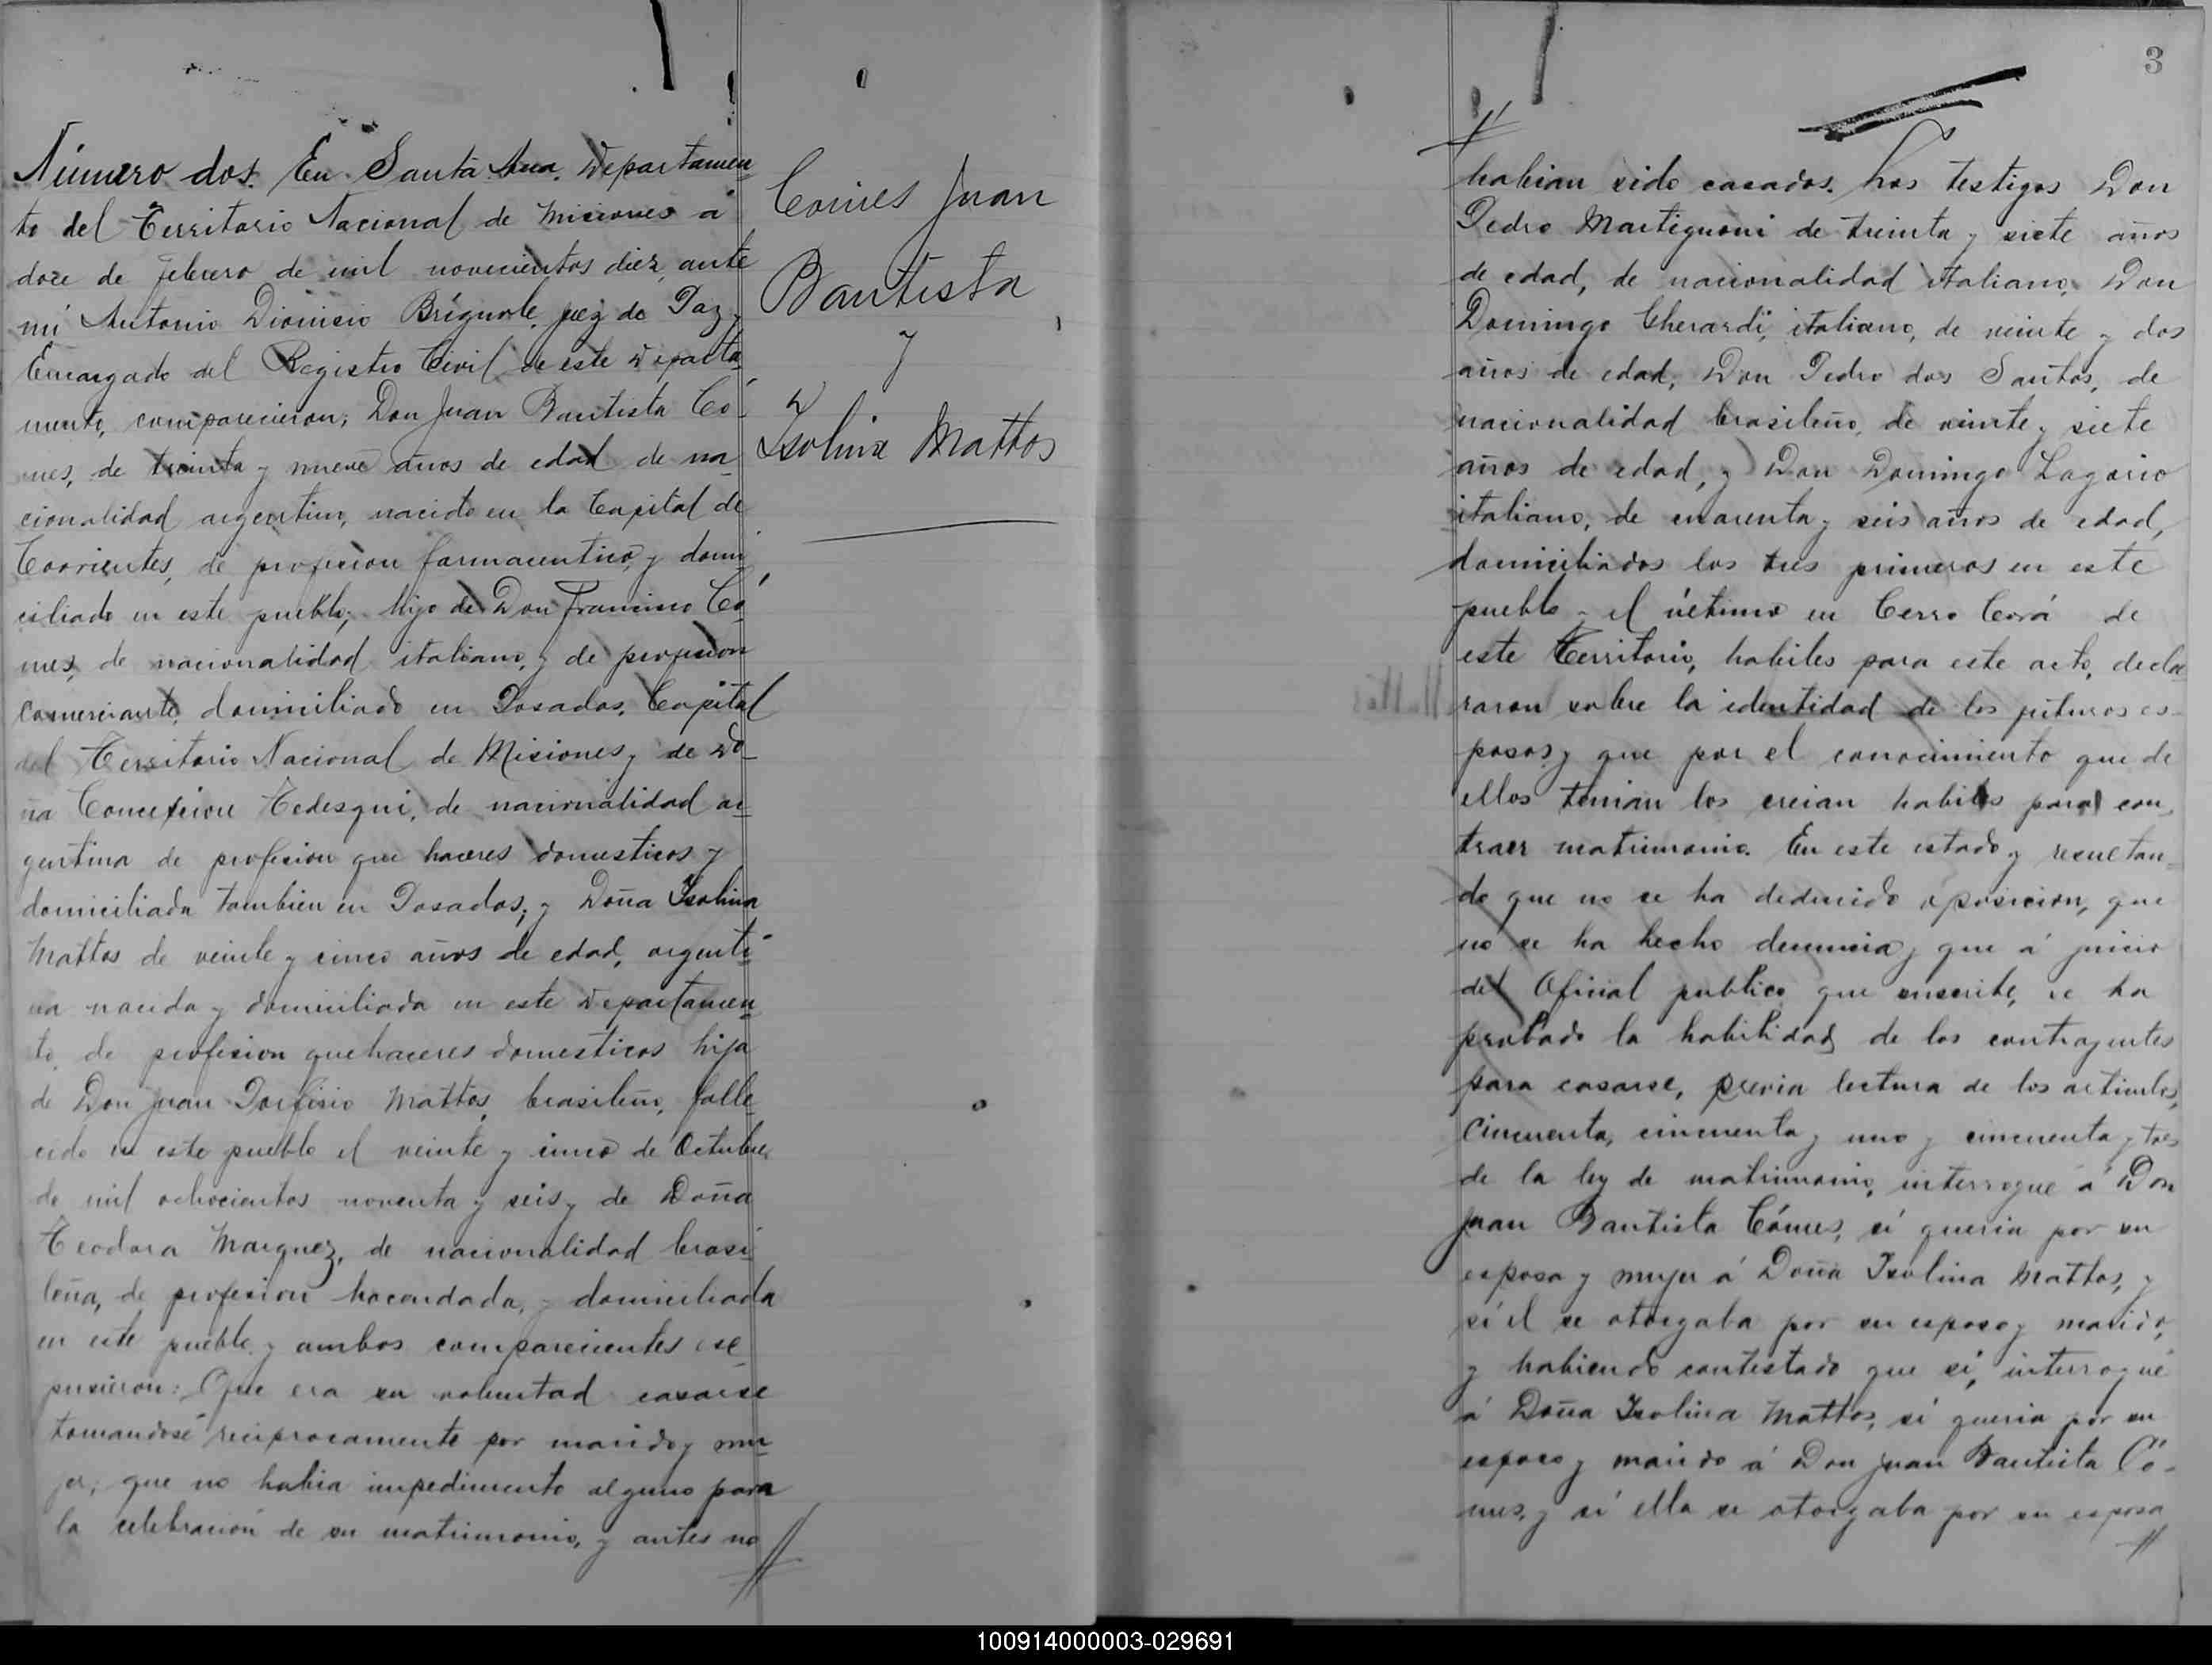 Número dos. En Santa Ana, Departamen
to del Territorio Nacional de Misiones á
doce de febrero de mil novecientos diez, ante
mi Antonio Dionisio Brignole, juez de Paz y
Encargado del Registro Civil de este Departa
mento, comparecieron; Don Juan Bautista Có-
mes, de treinta y nueve años de edad de na
cionalidad argentino, nacido en la Capital de
Corrientes, de profesion farmaceutico, y domi
ciliado en este pueblo, hijo de Don Francisco Có
mes, de nacionalidad italiano, y de profesion
comerciante, domiciliado en Posadas, Capital
del Territorio Nacional de Misiones y de Do
ña Concepcion Tedesqui, de nacionalidad ar
gentina de profesion que haceres domesticos y
domiciliada tambien en Posadas; y Doña Isolina
Mattos de veinte y cinco años de edad, argenti
na nacida y domiciliada en este Departamen
to, de profesion quehaceres domesticos hija
de Don Juan Mattos, brasileño, falle
cido en este pueblo el veinte y cinco de Octubre
de mil ochocientos noventa y seis y de Doña
Teodora Marquez, de nacionalidad brasi
leña, de profesion hacendada, y domiciliada
en este pueblo y ambos comparecientes es
pusieron: Que era su voluntad casarse
tomandosé reciprocamente por marido y mu
jer; que no habia impedimento alguno para
la celebracion de su matrimonio, y antes no
//
Comes Juan
Bautista
y
D
Isolina Mattos
3
//
habian sido casados. Los testigos Don
Pedro Martignoni de treinta y siete años
de edad, de nacionalidad italiano, Don
Domingo Gherardi, italiano, de veinte y dos
años de edad, Don Pedro dos Santos, de
nacionalidad brasileño, de veinte y siete
años de edad, y Don Domingo Lagorio
italiano, de cuarenta y seis años de edad,
domiciliados los tres primeros en este
pueblo y el último en Cerro Corá de
este Territorio, habiles para este acto, decla
raron sobre la identidad de los futuros es-
posos y que por el conocimiento que de
ellos tenian los creian habiles para con
traer matrimonio. En este estado y resultan
do que no se ha deducido oposicion, que
no se ha hecho denuncia y que á juicio
del Oficial publico que suscribe, se ha
probado la habilidad de los contrayentes
para casarse, previa lectura de los articulos,
cincuenta, cincuenta y uno y cincuenta y tres
de la ley de matrimonio, interrogué á Don
Juan Bautista Cómes, si queria por su
esposa y mujer á Doña Isolina Mattos, y
si él se otorgaba por su esposo y marido,
y habiendo contestado que si, interrogué
á Doña Isolina Mattos, si queria por su
esposo y marido á Don Juan Bautista Có-
mes, y si ella se otorgaba por su esposa
//
100914000003-029691